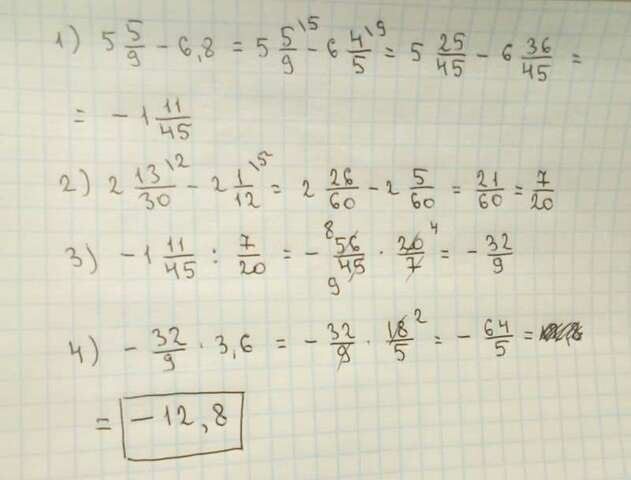 1) 5 5/9 - 6,8 = 5 5/9 \5 - 6 4/5 \9 = 5 25/45 - 6 36/45 =
= - 1 11/45
2) 2 13/30 \2 - 2 1/12 \5 = 2 26/60 - 2 5/60 = 21/60 = 7/20
3) - 1 11/45 : 7/20 = - 8 56/45 9 · 20/7 4 = - 32/9
4) - 32/9 · 3,6 = - 32/9 · 18/5 2 = - 64/5 =
= - 12,8